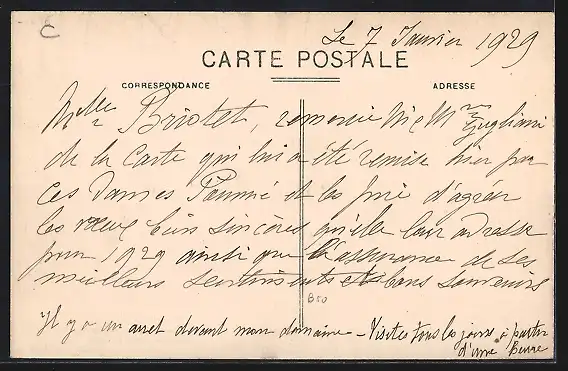 C
Le 7 Janvier 1929
CARTE POSTALE
CORRESPONDANCE
ADRESSE
Melle Briotet, remercie Mr & Mme Gugliani
de la Carte qui lui a été remise hier par
ces Dames Pommé et les prie d'agréer
les vœux bien sincères qu'elle leur adresse
pour 1929 ainsi que l'assurance de ses
meilleurs sentiments et bons souvenirs
Il y a un arret devant mon domaine - Visites tous les jours à partir
d'une heure